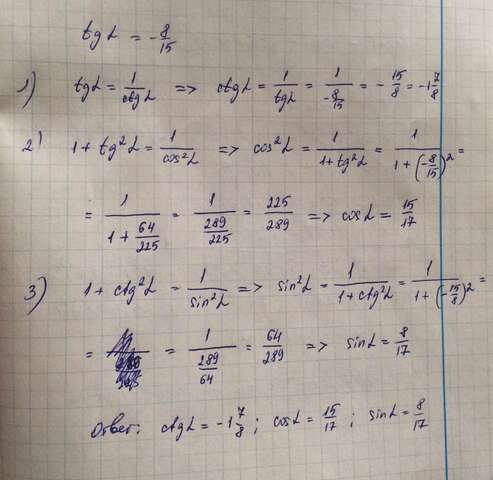 tg L = -8/15
1) tg L = 1/ctg L => ctg L = 1/tg L = 1/(-8/15) = -15/8 = -1 7/8
2) 1 + tg²L = 1/cos²L => cos²L = 1/(1+tg²L) = 1/(1+(-8/15)²) =
= 1/(1+64/225) = 1/(289/225) = 225/289 => cos L = 15/17
3) 1 + ctg²L = 1/sin²L => sin²L = 1/(1+ctg²L) = 1/(1+(-15/8)²) =
= = 1/(289/64) = 64/289 => sin L = 8/17
Ответ: ctg L = -1 7/8; cos L = 15/17; sin L = 8/17